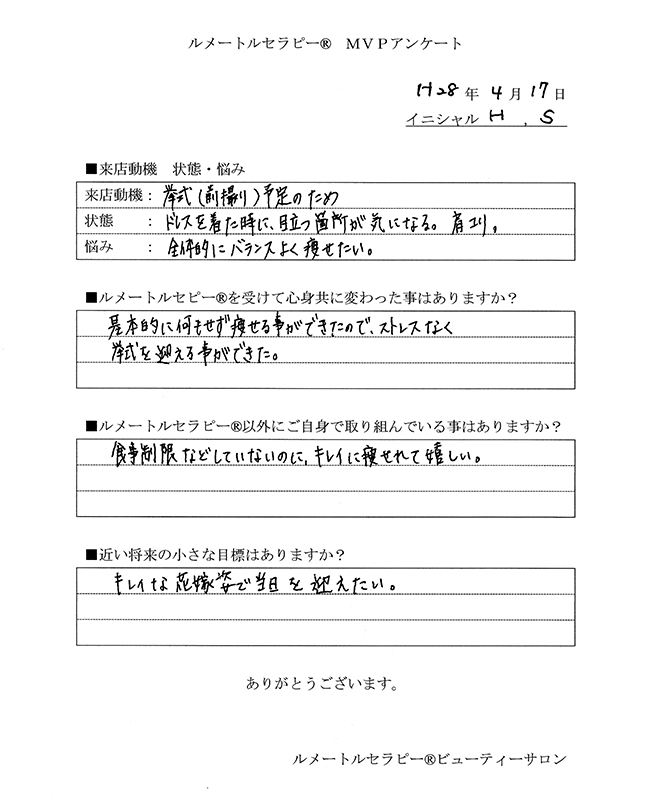 ルメートルセラピー® MVPアンケート
H28年 4月17日
イニシャル H . S
■来店動機 状態・悩み
来店動機: 挙式(前撮り)予定のため
状態 : ドレスを着た時に、目立つ箇所が気になる。肩コリ。
悩み : 全体的にバランスよく痩せたい。
■ルメートルセピー®を受けて心身共に変わった事はありますか?
基本的に何もせず痩せる事ができたので、ストレスなく
挙式を迎える事ができた。
■ルメートルセラピー®以外にご自身で取り組んでいる事はありますか?
食事制限などしていないのに、キレイに痩せれて嬉しい。
■近い将来の小さな目標はありますか?
キレイな花嫁姿で当日を迎えたい。
ありがとうございます。
ルメートルセラピー®ビューティーサロン